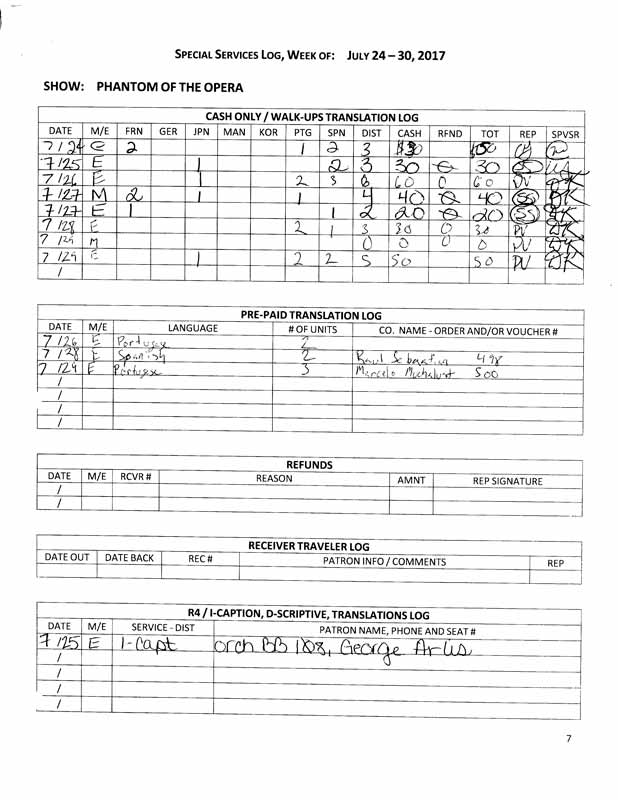 SPECIAL SERVICES LOG, WEEK OF: JULY 24 – 30, 2017
SHOW: PHANTOM OF THE OPERA
CASH ONLY / WALK-UPS TRANSLATION LOG
DATE M/E FRN GER JPN MAN KOR PTG SPN DIST CASH RFND TOT REP SPVSR
7/24 E 2 1 2 3
7/25 E 1 2 3 30 0 30 SS
7/26 E 1 2 3 6 60 0 60 PV DK
7/27 M 2 1 1 4 40 0 40 SS DK
7/27 E 1 1 2 20 0 20 SS DK
7/28 E 2 1 3 30 0 30 PV DK
7/29 M 0 0 0 0 PV DK
7/29 E 1 2 2 5 50 50 PV DK
/
PRE-PAID TRANSLATION LOG
DATE M/E LANGUAGE # OF UNITS CO. NAME - ORDER AND/OR VOUCHER #
7/26 E Portugese 2
7/28 E Spanish 2 Raul Sebastian 498
7/29 E Portugese 3 Marcelo 500
/
/
/
REFUNDS
DATE M/E RCVR # REASON AMNT REP SIGNATURE
/
/
RECEIVER TRAVELER LOG
DATE OUT DATE BACK REC # PATRON INFO / COMMENTS REP
R4 / I-CAPTION, D-SCRIPTIVE, TRANSLATIONS LOG
DATE M/E SERVICE - DIST PATRON NAME, PHONE AND SEAT #
7/25 E I-Capt orch BB 108, George Arlis
/
/
/
/
7